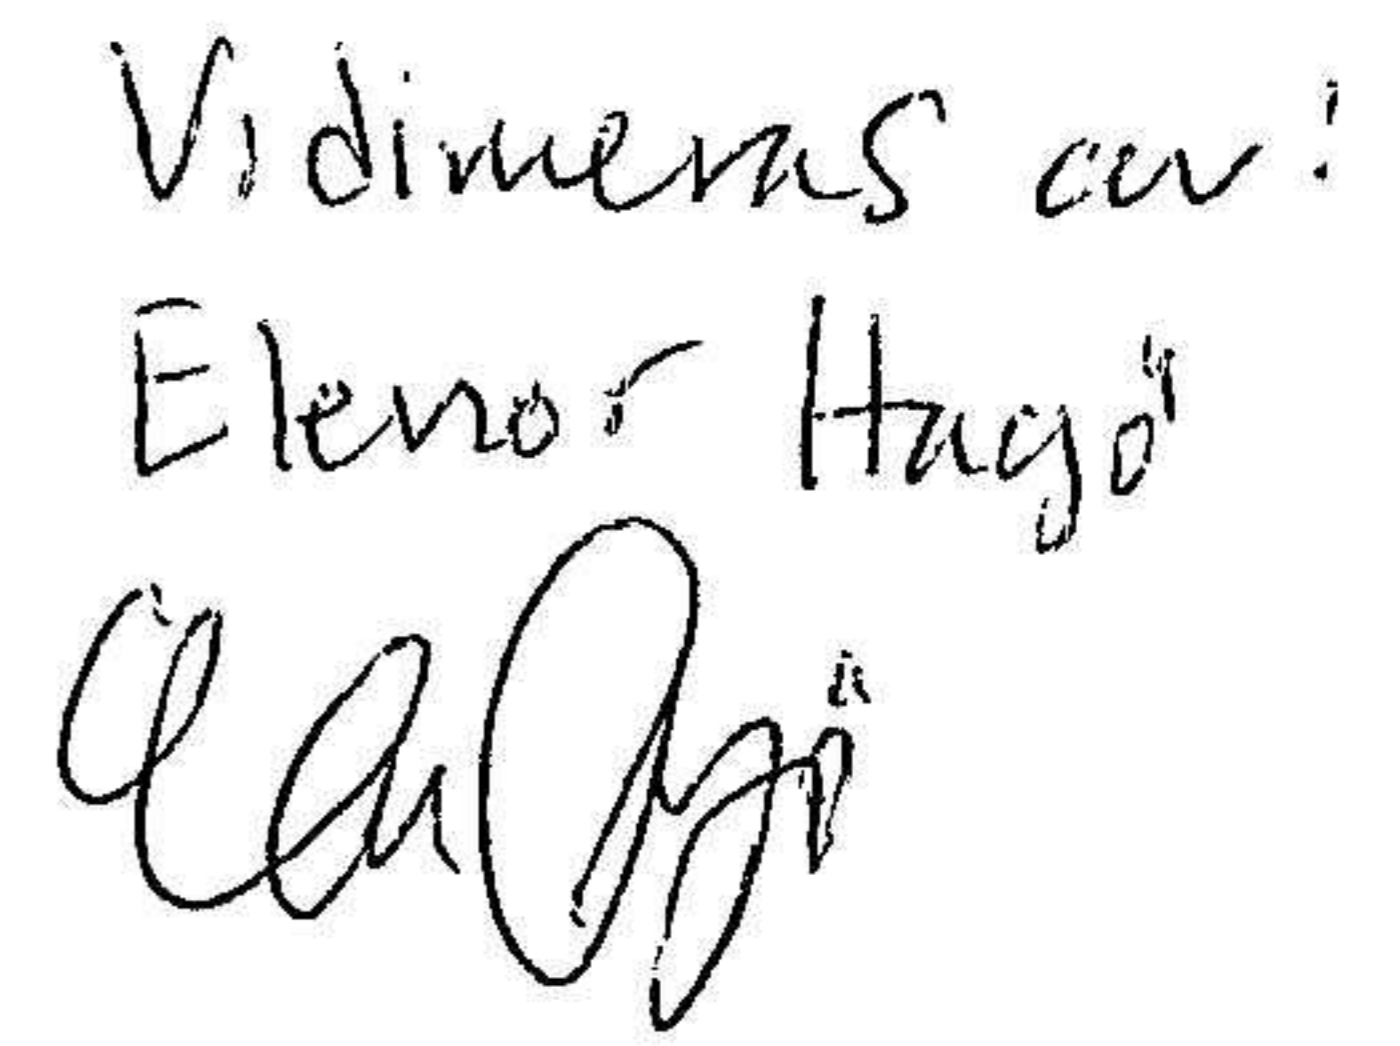 Vidimeras av:
Elenor Hagö